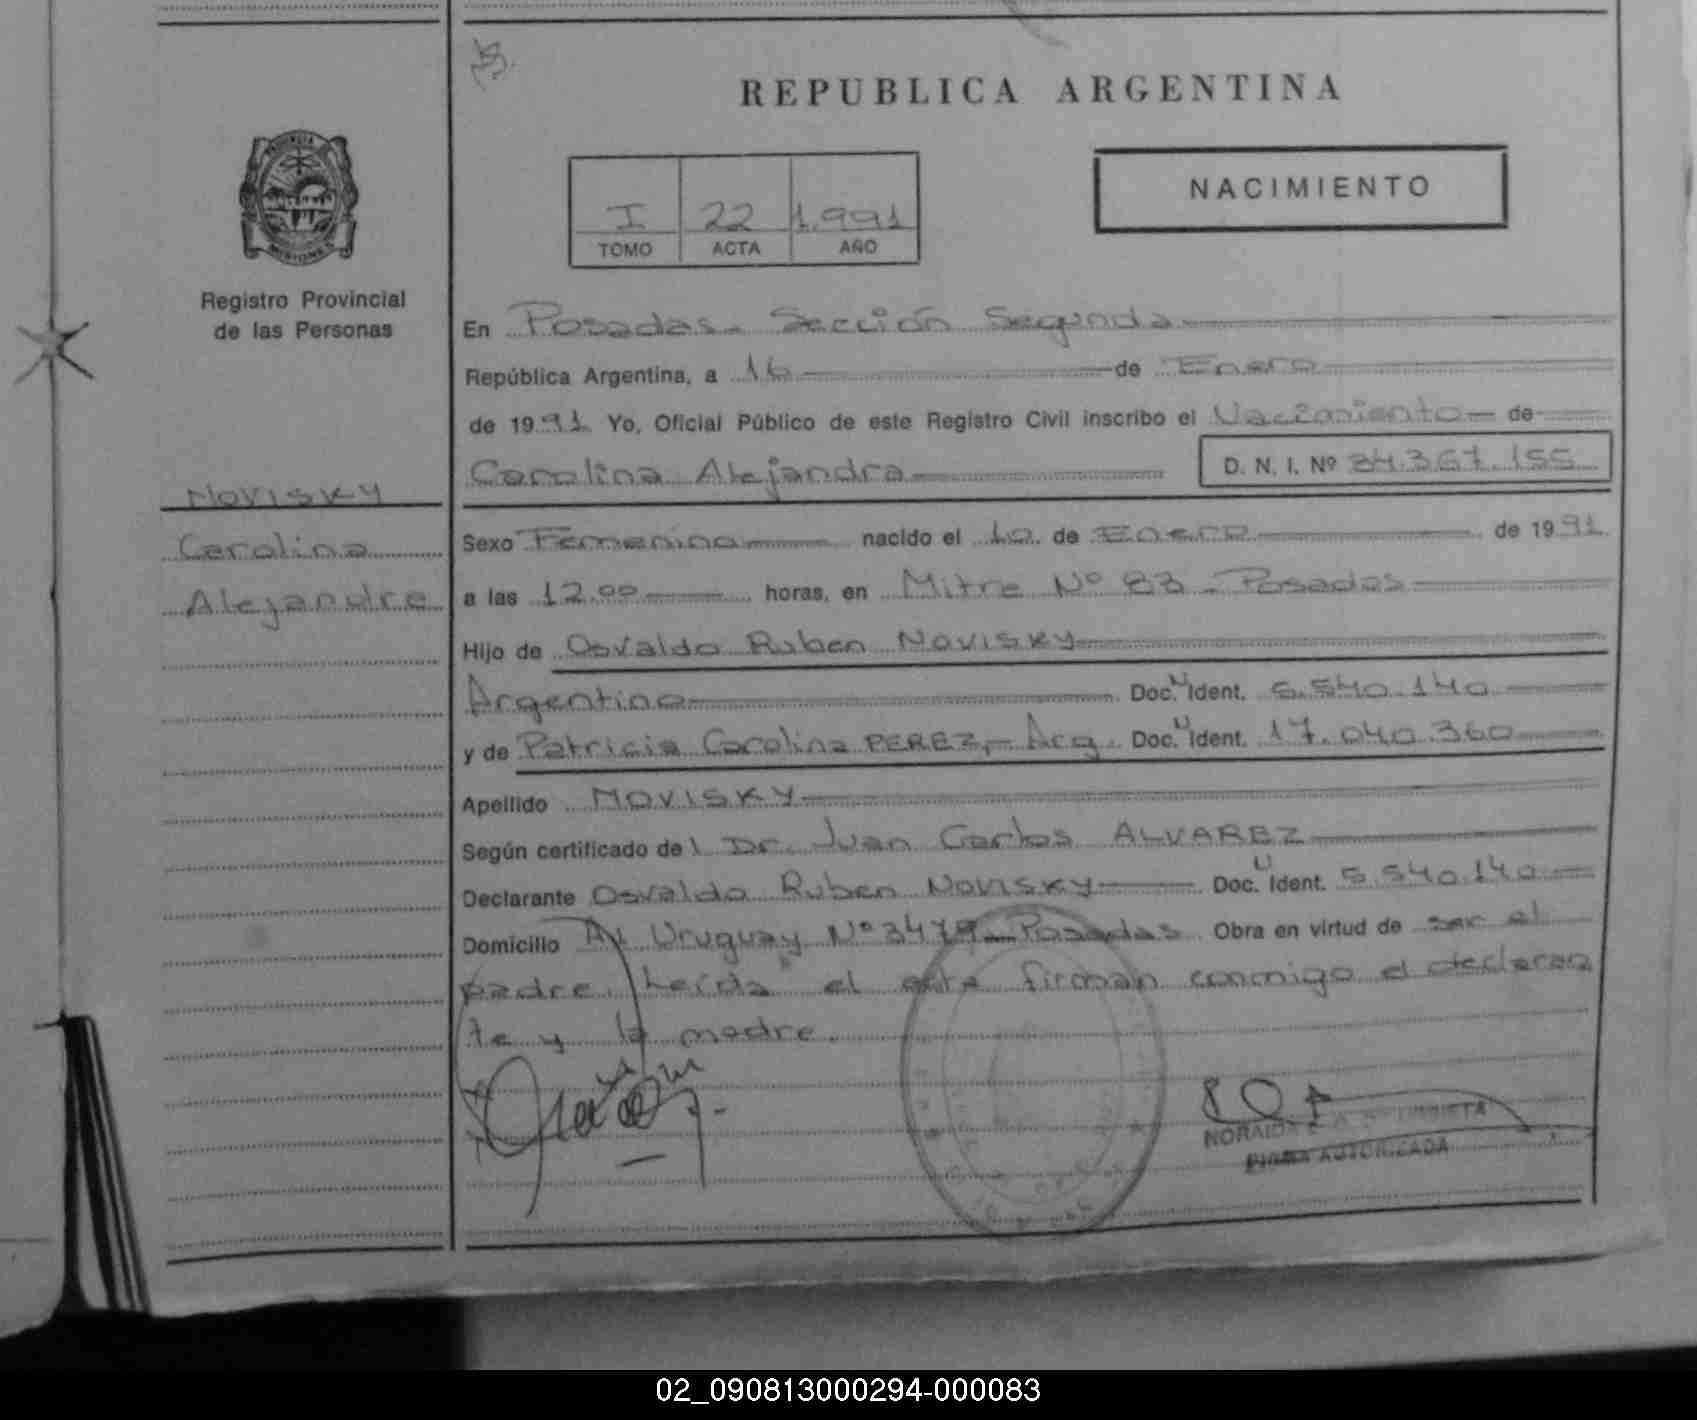 REPUBLICA ARGENTINA
NACIMIENTO
I 22 1.991
TOMO ACTA AÑO
PROVINCIA
MISIONES
Registro Provincial
de las Personas
NOVISKY
Carolina
Alejandra
En Posadas - Sección Segunda
República Argentina, a 16 de Enero
de 1991 Yo, Oficial Público de este Registro Civil inscribo el Nacimiento de
Carolina Alejandra D. N. I. Nº 34.367.155
Sexo Femenino nacido el 10 de Enero de 1991
a las 12.00 horas, en Mitre Nº 83 - Posadas
Hijo de Osvaldo Ruben NOVISKY
Argentino Doc. N Ident. 5.540.140
y de Patricia Carolina PEREZ, - Arg. Doc. N Ident. 17.040.360
Apellido NOVISKY
Según certificado del Dr. Juan Carlos ALVAREZ
Declarante Osvaldo Ruben NOVISKY Doc. N Ident. 5.540.140
Domicilio Av Uruguay Nº 3479 - Posadas Obra en virtud de ser el
padre. Leída el acta firman conmigo el declaran
te y la madre.
FIRMA AUTORIZADA
02_090813000294-000083